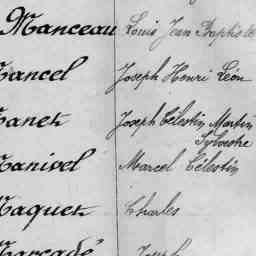 Manceau Louis Jean Baptiste
Mancel Joseph Henri Léon
Manet Joseph Célestin Martin
Sylvestre
Manivel Marcel Célestin
Maquet Charles
Marcadé Joseph